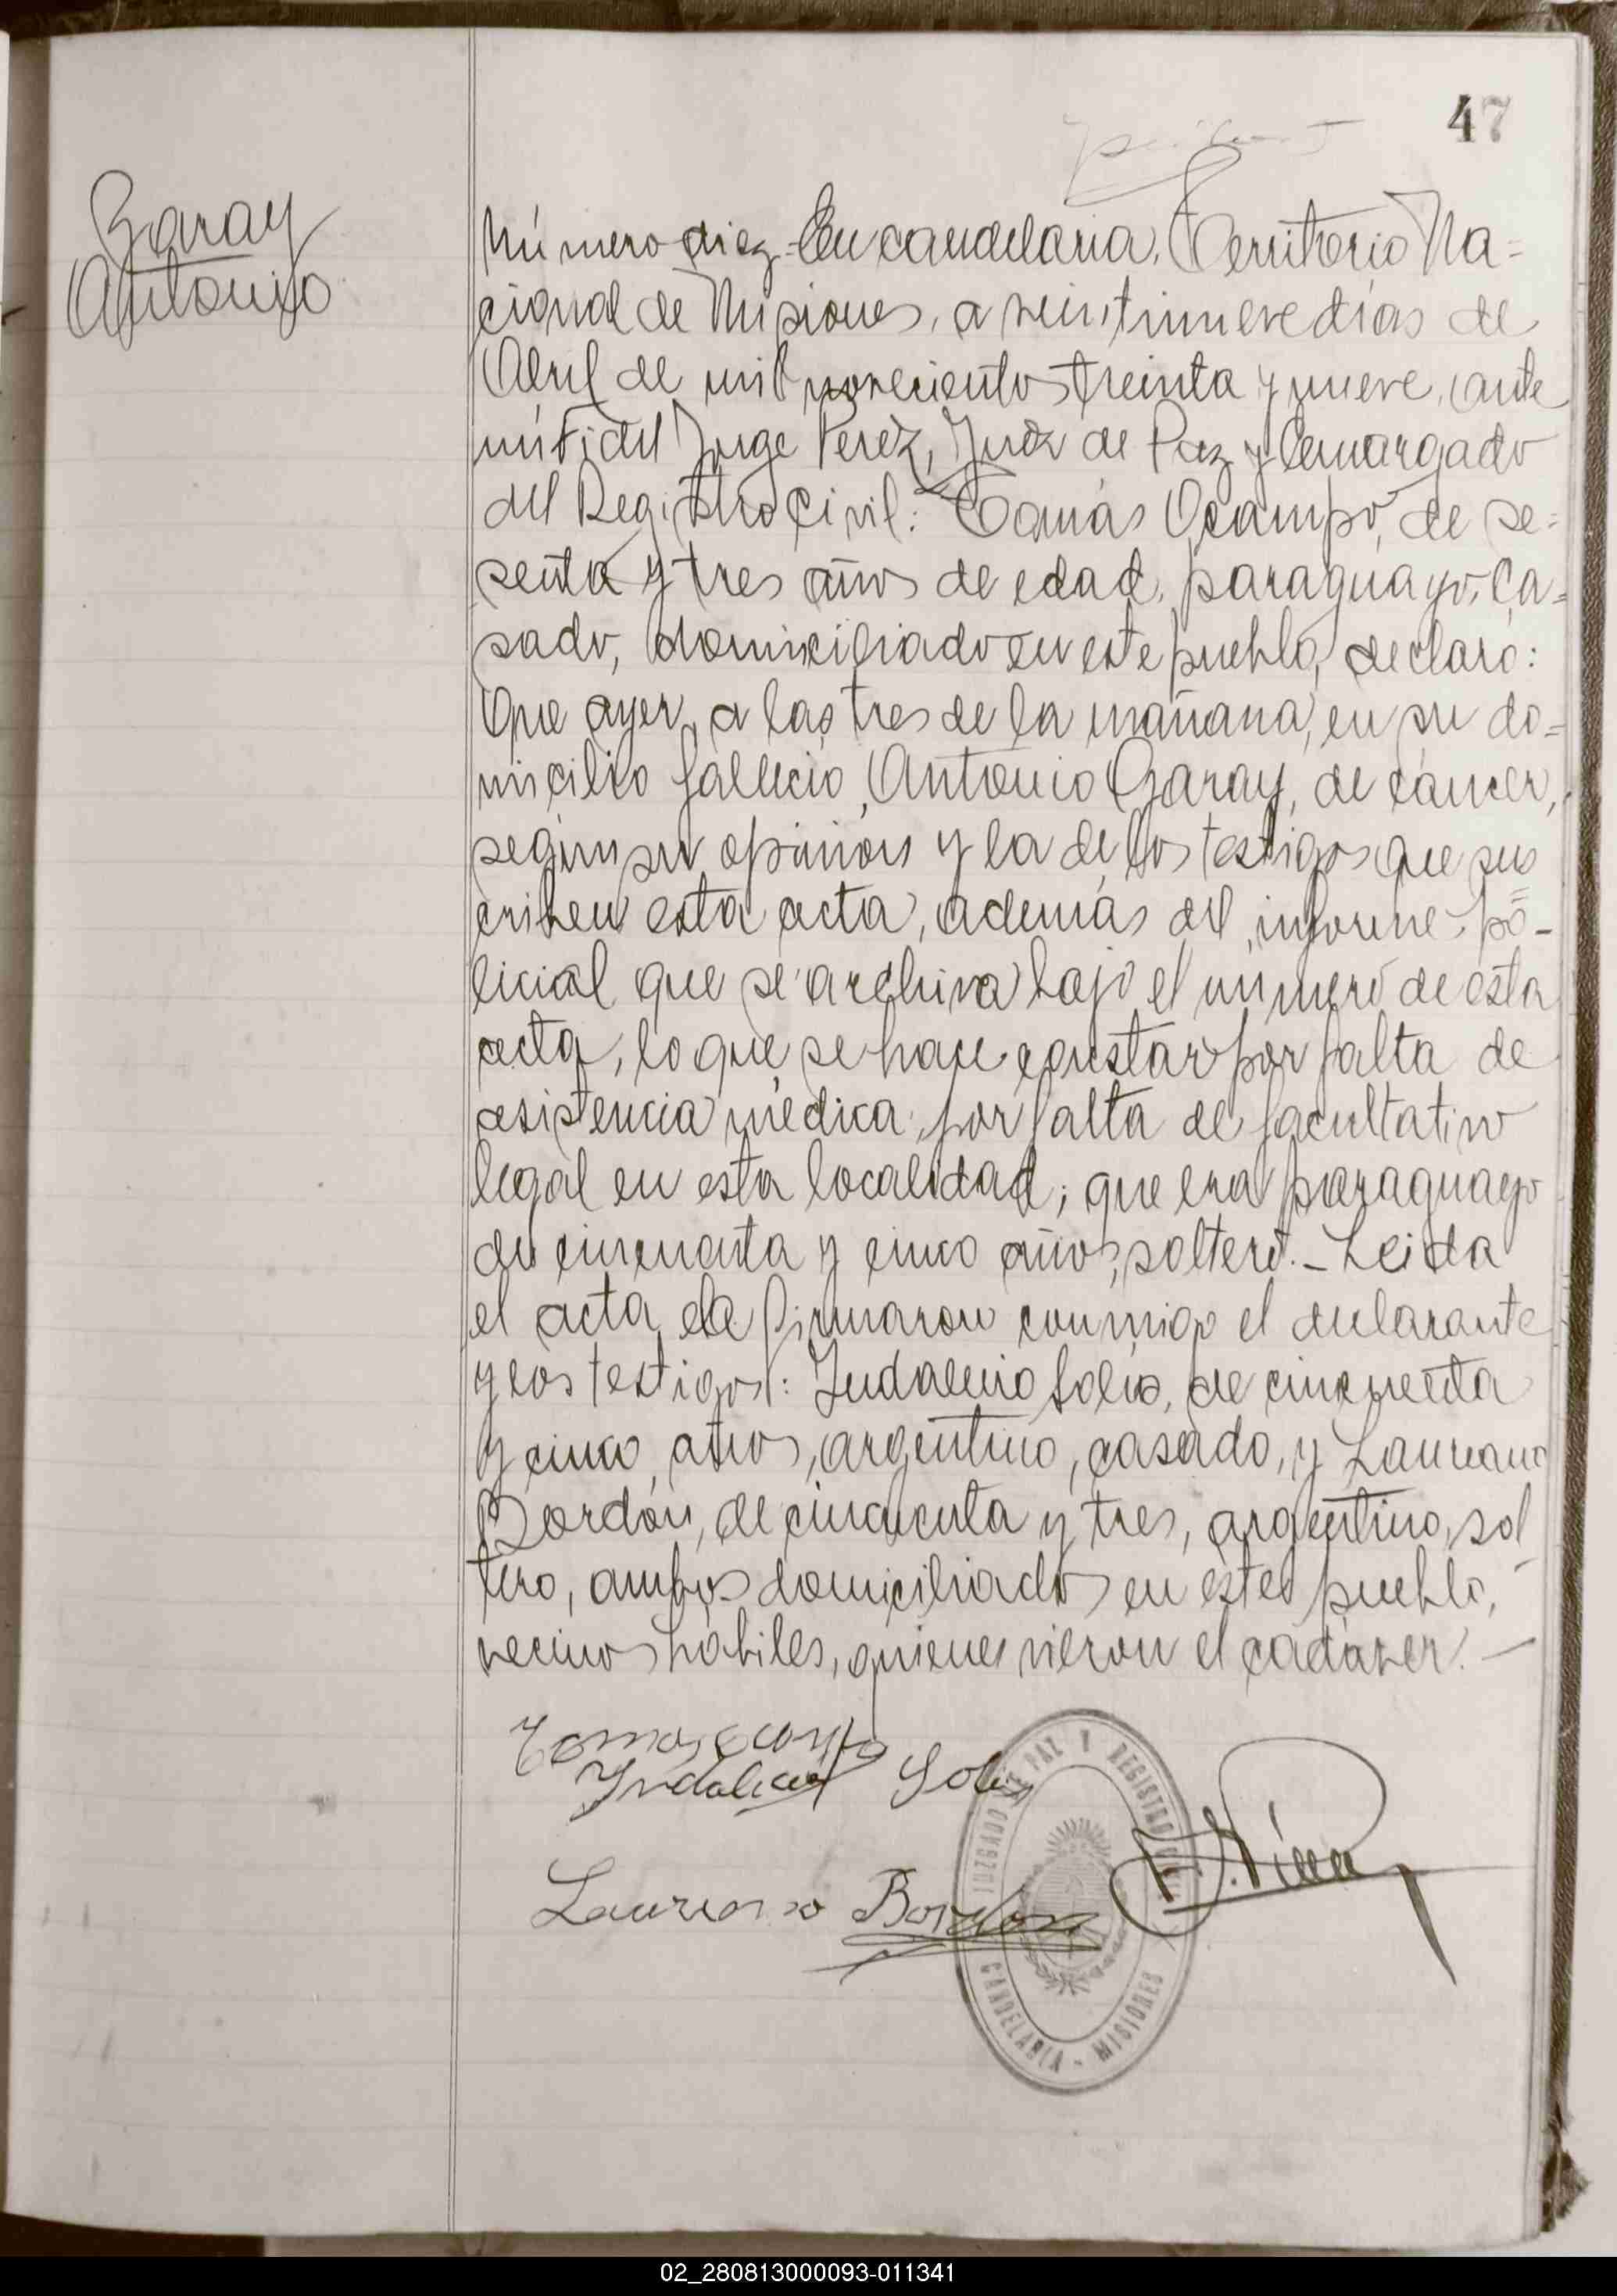 47
Garay
Antonio
Número diez.- En candelaria, Territorio Na=
cional de Misiones, a veintinueve días de
Abril de mil novecientos treinta y nueve, ante
mí Fidel Jorge Perez, Juez de Paz y Encargado
del Registro Civil: Tomás Ocampo, de se=
senta y tres años de edad, paraguayo, ca=
sado, domiciliado en este pueblo, declaró:
Que ayer, a las tres de la mañana, en su do=
micilio falleció Antonio Garay, de cáncer,
según su opinión y la de los testigos que sus
criben esta acta, además del informe po-
licial que se archiva bajo el número de esta
acta, lo que se hace constar por falta de
asistencia médica, por falta de facultativo
legal en esta localidad; que era paraguayo
de cincuenta y cinco años, soltero.- Leida
el acta la firmaron conmigo el declarante
y los testigos: Indalecio Solis, de cincuenta
y cinco años, argentino, casado, y Laureano
Bordón, de cincuenta y tres, argentino, sol
tero, ambos domiciliados en este pueblo,
vecinos hábiles, quienes vieron el cadáver.-
Tomas Ocampo
Yndalecio Solis
Laureano Bordon
JUZGADO DE PAZ Y REGISTRO CIVIL
CANDELARIA - MISIONES
02_280813000093-011341